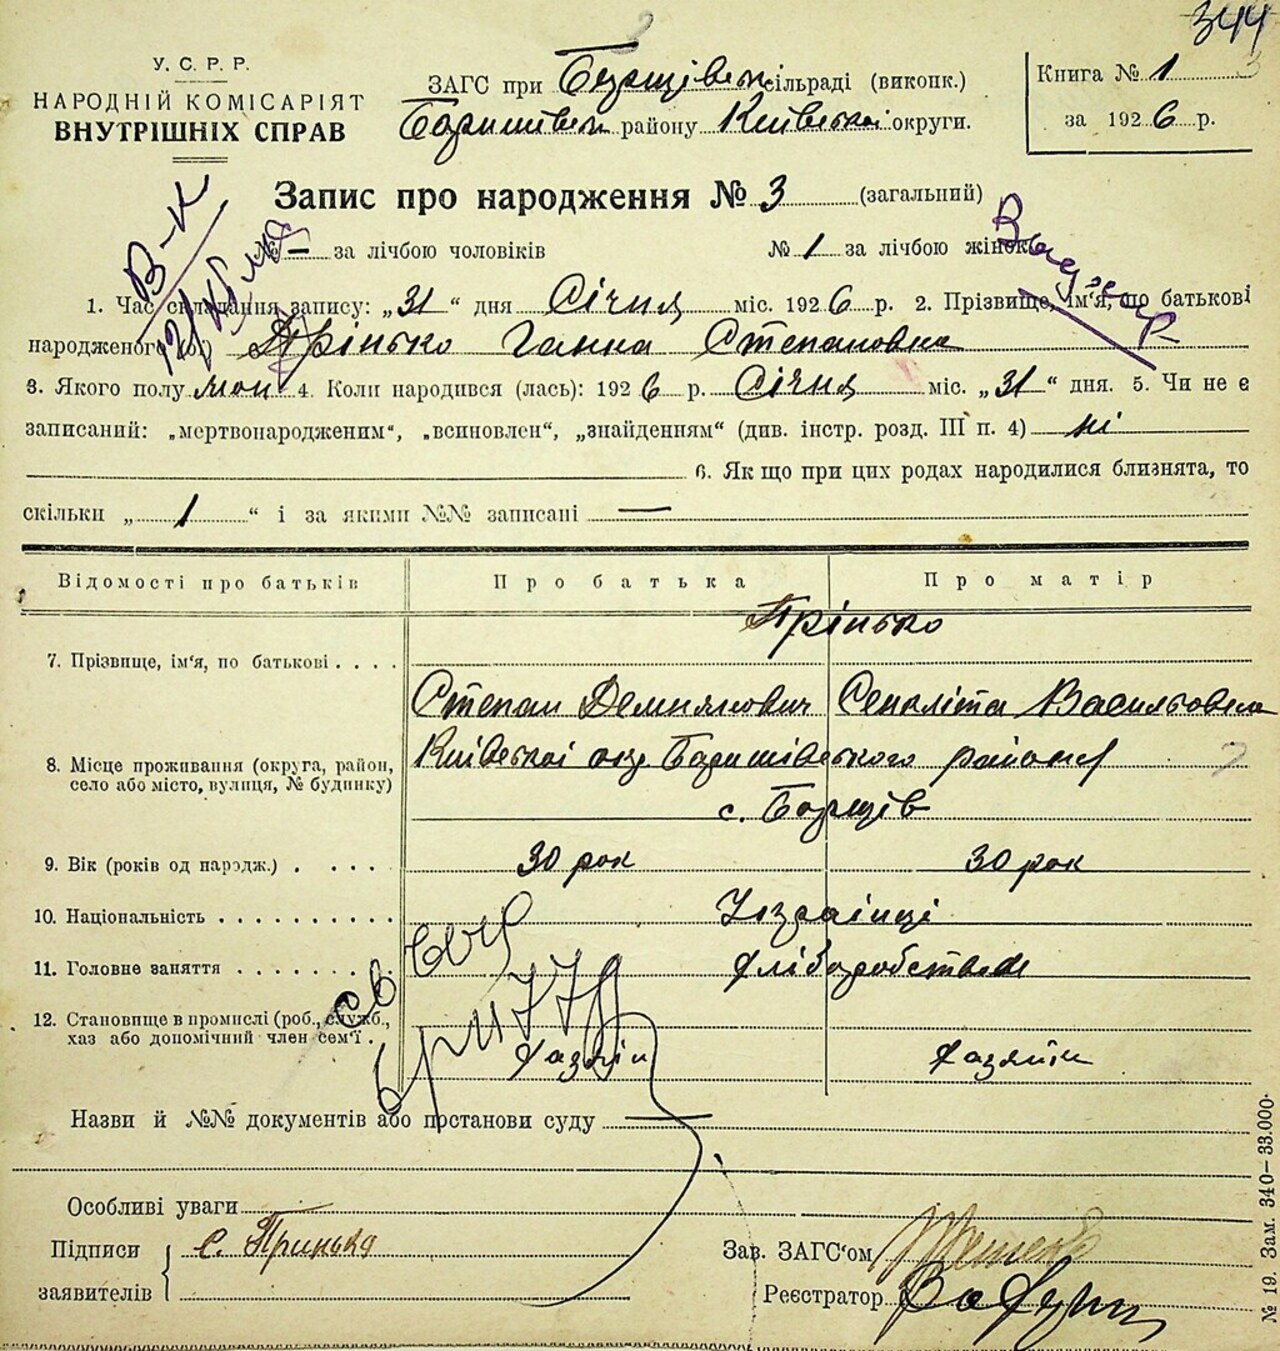 344
У. С. Р. Р.
НАРОДНІЙ КОМІСАРІЯТ
ВНУТРІШНІХ СПРАВ
ЗАГС при Борщівск сільраді (виконк.)
Баришівск району Київської округи.
Книга № 1
за 1926 р.
Запис про народження № 3 (загальний)
№ — за лічбою чоловіків № 1 за лічбою жінок
В-К
1. Час складання запису: „31“ дня Січня міс. 1926 р. 2. Прізвище, ім'я, по батькові
народженого (ої) Прінько Ганна Степановна
3. Якого полу жон 4. Коли народився (лась): 1926 р. Січня міс. „31“ дня. 5. Чи не є
записаний: „мертвонародженим“, „всиновлен“, „знайденням“ (див. інстр. розд. III п. 4) ні
6. Як що при цих родах народилися близнята, то
скільки „1“ і за якими №№ записані —
Відомості про батьків Про батька Про матір
Прінько
7. Прізвище, ім'я, по батькові . . . .
Степан Демянович Секліта Васильовна
8. Місце проживання (округа, район,
село або місто, вулиця, № будинку)
Київської окр. Баришівського району
с. Борщів
9. Вік (років од народж.) . . . . 30 рок 30 рок
10. Національність . . . . . . . . . . Українці
11. Головне заняття . . . . . . . . Хліборобство
12. Становище в промислі (роб., служб.,
хаз або допомічний член сем'ї .
Хазяїн Хазяїн
Назви й №№ документів або постанови суду —
Особливі уваги
Підписи
заявителів
С. Принько
Зав. ЗАГС'ом
Реєстратор
№ 19. Зам. 340—33.000.